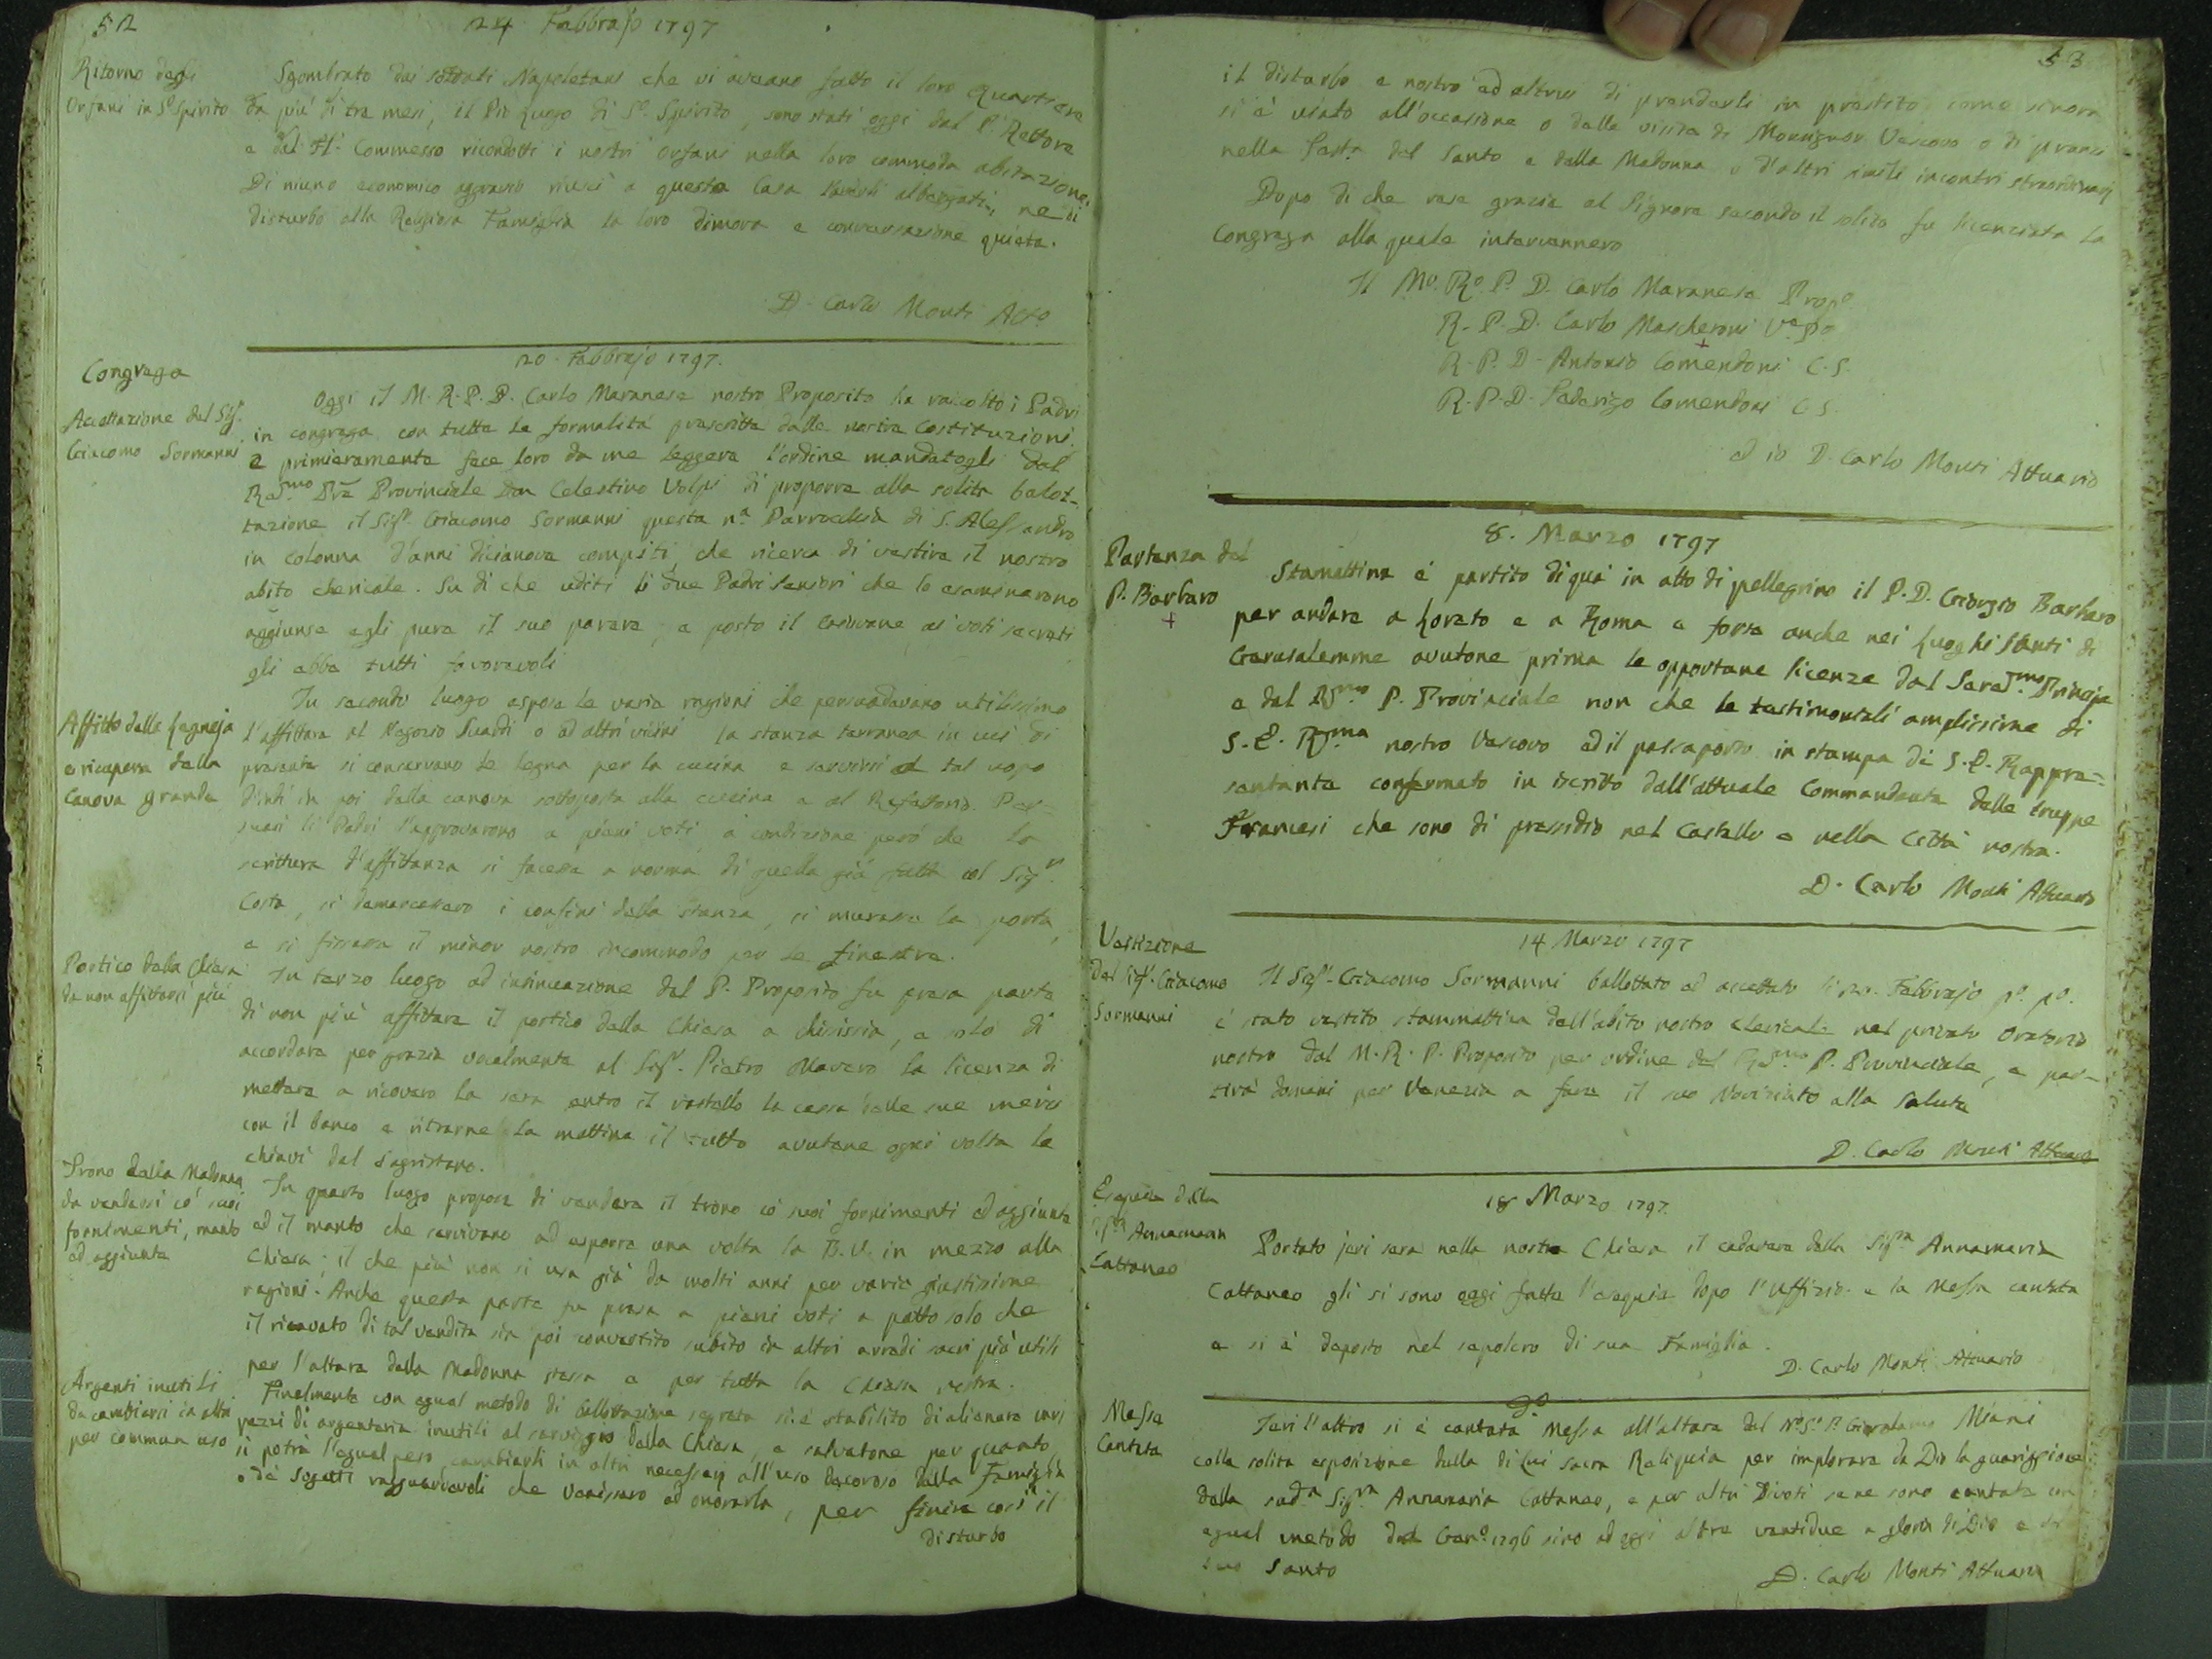 52
24 Febbrajo 1797
Ritorno degli
Orfani in S.o Spirito
Sgombrato dai soldati Napoletani che vi aveano fatto il loro Quartiere
da più di tre mesi, il Pio Luogo di S.o Spirito, sono stati oggi dal P. Rettore
e dal Fl. Commesso ricondotti i nostri Orfani nella loro commoda abitazione.
Di niuno economico aggravio riuscì a questa Casa l'averli albergati, ne di
disturbo alla Religiosa Famiglia la loro dimora e conversazione quieta.
D. Carlo Monti Att.o
Congrega
Accettazione del Sig.r
Giacomo Sormanni
20. Febbrajo 1797.
Oggi il M. R. P. D. Carlo Maranese nostro Proposito ha raccolto i Padri
in congrega con tutte le formalità prescritte dalle nostre Costituzioni.
E primieramente fece loro da me leggere l'ordine mandatogli dal
Red.mo Pre Provinciale Don Celestino Volpi di proporre alla solita balot-
tazione il Sig.r Giacomo Sormanni questa n.a Parrocchia di S. Alessandro
in colonna d'anni dicianove compiti, che ricerca di vestire il nostro
abito chericale. Su di che uditi li due Padri Seniori che lo esaminarono
aggiunse egli pure il suo parere, e posto il Giovane ai voti secreti
gli ebbe tutti favorevoli
Affitto della Legneja
e ricupera della
Canova grande
In secondo luogo espose le varie ragioni che persuadevano utilissimo
l'affittare al Negozio Suardi o ad altri vicini la stanza terranea in cui di
presente si conservano le legna per la cucina e servirsi a tal uopo
d'indi in poi della canova sottoposta alla cucina e al Refettorio. Per-
suasi li Padri l'approvarono a pieni voti a condizione però che la
scrittura d'affittanza si facesse a norma di quella già fatta col Sig.r
Costa, si demarcassero i confini della stanza, si murasse la porta,
e si fissasse il minor nostro incommodo per le finestre.
Portico della Chiesa
da non affittarsi più
In terzo luogo ad insinuazione del P. Proposito fu presa parte
di non più affittare il portico della Chiesa a chicissia, e solo di
accordare per grazia vocalmente al Sig.r Pietro Mavero la licenza di
mettere a ricovero la sera entro il rastello la cassa delle sue merci
con il banco e ritrarne la mattina il tutto avutone ogni volta le
chiavi dal Sagristano.
Trono della Madonna
da vendersi cò suoi
fornimenti, manto
ed aggiunta
In quarto luogo propose di vendere il trono cò suoi fornimenti ed aggiunta
ed il manto che servivano ad esporre una volta la B. V. in mezzo alla
Chiesa; il che più non si usa già da molti anni per varie giustissime
ragioni. Anche questa parte fu presa a pieni voti a patto solo che
il ricavato di tal vendita sia poi convertito subito in altri arredi sacri più utili
per l'altare della Madonna stessa e per tutta la Chiesa nostra.
Argenti inutili
da cambiarsi in altri
per commun uso
Finalmente con egual metodo di ballottazione segreta si è stabilito di alienare varj
pezzi di argenteria inutili al servigio della Chiesa, e salvatone per quanto
si potrà l'egual peso cambiarli in altri necessarj all'uso decoroso della Famiglia
o dè Sogetti ragguardevoli che venissero ad onorarla, per finire così il
disturbo
53
il disturbo e nostro ed altrui di prenderli in prestito come sinora
si è usato all'occasione o della visita di Monsignor Vescovo o di pranzi
nella Festa del Santo e della Madonna o d'altri simili incontri straordinarj
Dopo di che rese grazie al Signore secondo il solito fu licenziata la
Congrega alla quale intervennero
Il M.o R.o P. D. Carlo Maranese Prop.o
R. P. D. Carlo Mascheroni V.e P.o
R. P. D. Antonio Comendoni C. S.
R. P. D. Federigo Comendoni C. S.
ed io D. Carlo Monti Attuario
Partenza del
P. Barbaro
8. Marzo 1797
Stamattina è partito di quà in atto di pellegrino il P. D. Giorgio Barbaro
per andare a Loreto e a Roma e forse anche nei Luoghi Santi di
Gerusalemme avutone prima le opportune licenze dal Sered.mo Principe
e dal Rd.mo P. Provinciale non che le testimoniali amplissime di
S. E. Rd.ma nostro Vescovo ed il passaporto in stampa di S. E. Rappre=
sentante confermato in iscritto dall'attuale Commandante delle truppe
Francesi che sono di presidio nel Castello e nella Città nostra.
D. Carlo Monti Attuario
Vestizione
del Sig.r Giacomo
Sormanni
14 Marzo 1797
Il Sig.r Giacomo Sormanni ballottato ed accettato li 20. Febbrajo p.o p.o
è stato vestito stammattina dell'abito nostro clericale nel privato Oratorio
nostro dal M. R. P. Proposito per ordine del Rd.mo P. Provinciale, e par-
tirà domani per Venezia a fare il suo Noviziato alla Salute
D. Carlo Monti Attuario
Esequie della
Sig.ra Annamaria
Cattaneo
18 Marzo 1797.
Portato jeri sera nella nostra Chiesa il cadavere della Sig.ra Annamaria
Cattaneo gli si sono oggi fatte l'esequie dopo l'Uffizio e la Messa cantata
e si è deposto nel sepolcro di sua Famiglia.
D. Carlo Monti Attuario
Messa
Cantata
Jeri l'altro si è cantata Messa all'altare del N.o S.o P. Girolamo Miani
colla solita esposizione della di Lui sacra Reliquia per implorare da Dio la guarigione
della sud.a Sig.ra Annamaria Cattaneo, e per altri Divoti se ne sono cantate con
egual metodo dal Gen.o 1796 sino ad oggi altre ventidue a gloria di Dio e del
suo Santo
D. Carlo Monti Attuario